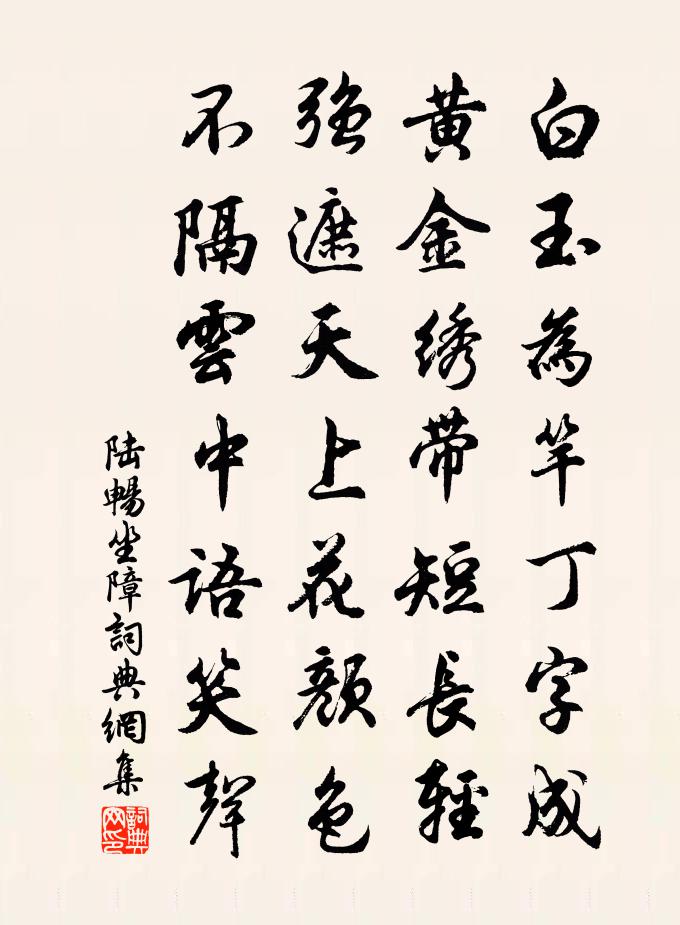 白玉為竿丁字成
黃金绣带短長輕
強遮天上花顏色
不隔雲中語笑聲
陆暢坐障詞典網集
詞典网印